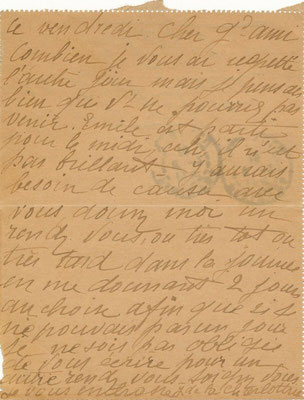 ce vendredi cher gd ami
Combien je vous ai regretté
l'autre jour mais je pensais
bien que vs ne pourriez pas
venir. Emile est parti
pour le midi, il n'est
pas brillant. J'aurais
besoin de causer avec
vous donnez moi un
rendez vous ou très tôt ou
très tard dans la journée
en me donnant 2 jours
au choix afin que si je
ne pouvais pas un jour
je ne sois pas obligée
de vous écrire pour un
autre rendez vous
je vous embrasse